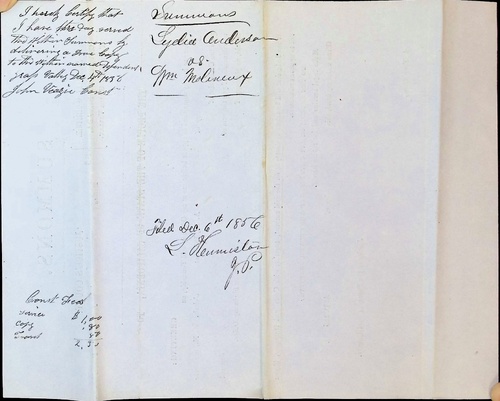 I hereby Certify that
I have this day served
the within Summons by
delivering a true Copy
to the within named defendant
Grass Valley Dec 4th 1856
John Const
Summons
Lydia Anderson
vs.
Wm Molineux
Filed Dec. 6th 1856
S. Heuniston
J.P.
Const Fees
service $1,00
Copy
Travel